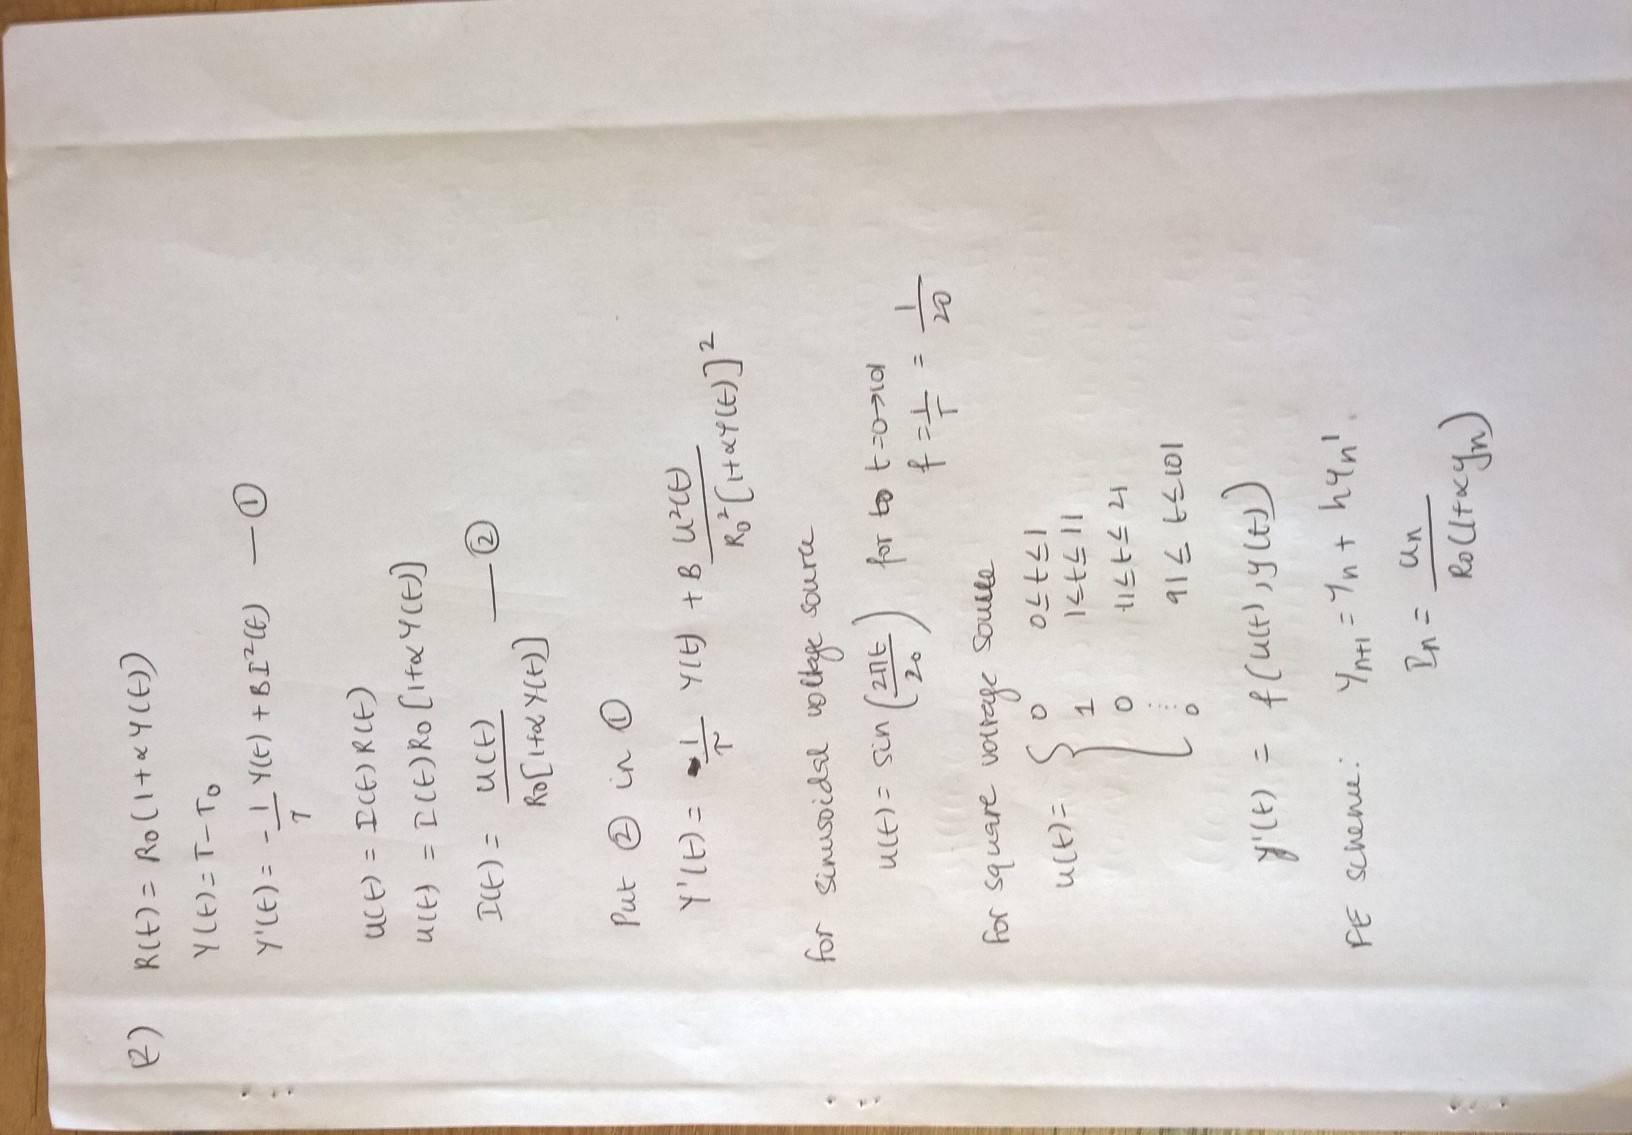 2) R(t) = R0(1+αY(t))
Y(t) = T - T0
Y'(t) = -1/τ Y(t) + BI²(t) — ①
u(t) = I(t) R(t)
u(t) = I(t) R0 [1+αY(t)]
I(t) = u(t) / R0[1+αY(t)] — ②
Put ② in ①
Y'(t) = -1/τ Y(t) + B u²(t) / R0² [1+αY(t)]²
for sinusoidal voltage source
u(t) = sin (2πt/20) for t=0→101
f = 1/T = 1/20
for square voltage source
u(t) = { 0 0≤t≤1
1 1≤t≤11
0 11≤t≤21
.....
0 91≤ t≤101
y'(t) = f(u(t), y(t))
FE scheme: Yn+1 = Yn + hYn'.
In = un / R0(1+αyn)